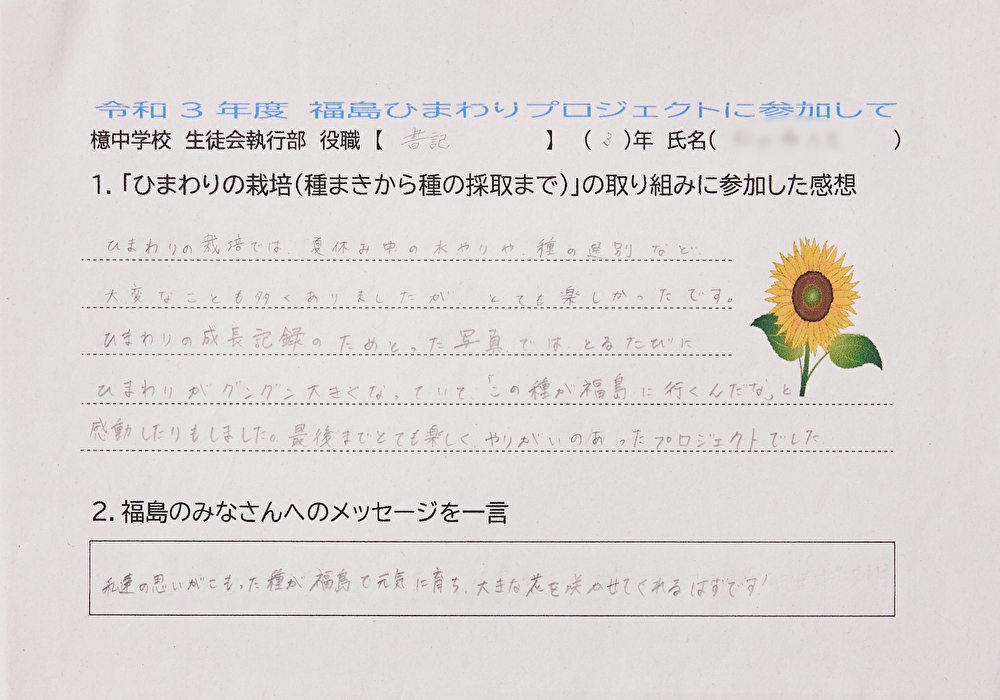 令和3年度 福島ひまわりプロジェクトに参加して
檍中学校 生徒会執行部 役職【 書記 】 (3)年 氏名( )
1.「ひまわりの栽培(種まきから種の採取まで)」の取り組みに参加した感想
ひまわりの栽培では、夏休み中の水やりや、種の選別など、
大変なことも多くありましたが、とても楽しかったです。
ひまわりの成長記録のためとった写真では、とるたびに
ひまわりがグングン大きくなっていて、「この種が福島に行くんだな」と
感動したりもしました。最後までとても楽しく、やりがいのあったプロジェクトでした
2.福島のみなさんへのメッセージを一言
私達の思いがこもった種が福島で元気に育ち、大きな花を咲かせてくれるはずです!